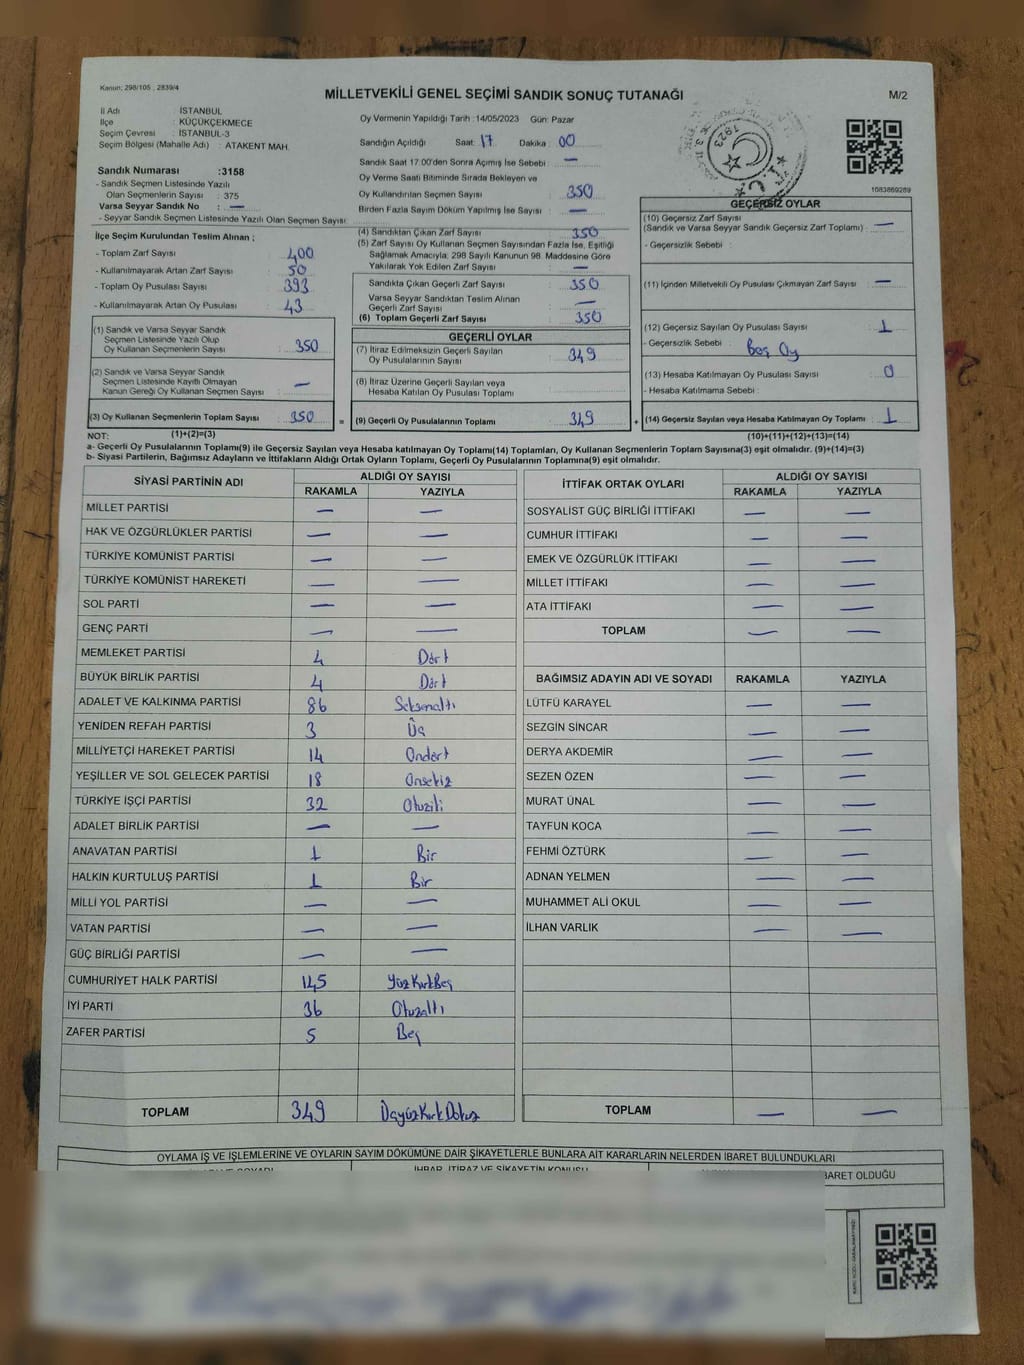 Kanun: 298/105 , 2839/4
MİLLETVEKİLİ GENEL SEÇİMİ SANDIK SONUÇ TUTANAĞI
M/2
İl Adı : İSTANBUL
İlçe : KÜÇÜKÇEKMECE
Seçim Çevresi : İSTANBUL-3
Seçim Bölgesi (Mahalle Adı) : ATAKENT MAH.
Sandık Numarası :3158
- Sandık Seçmen Listesinde Yazılı
Olan Seçmenlerin Sayısı : 375
Varsa Seyyar Sandık No : —
- Seyyar Sandık Seçmen Listesinde Yazılı Olan Seçmen Sayısı:
Oy Vermenin Yapıldığı Tarih :14/05/2023 Gün: Pazar
Sandığın Açıldığı Saat: 17 Dakika: 00
Sandık Saat 17:00'den Sonra Açılmış İse Sebebi : —
Oy Verme Saati Bitiminde Sırada Bekleyen ve
Oy Kullandırılan Seçmen Sayısı : 350
Birden Fazla Sayım Döküm Yapılmış İse Sayısı : —
1923
T.C.
1083869289
İlçe Seçim Kurulundan Teslim Alınan ;
- Toplam Zarf Sayısı : 400
- Kullanılmayarak Artan Zarf Sayısı : 50
- Toplam Oy Pusulası Sayısı : 393
- Kullanılmayarak Artan Oy Pusulası : 43
(1) Sandık ve Varsa Seyyar Sandık
Seçmen Listesinde Yazılı Olup
Oy Kullanan Seçmenlerin Sayısı : 350
(2) Sandık ve Varsa Seyyar Sandık
Seçmen Listesinde Kayıtlı Olmayan
Kanun Gereği Oy Kullanan Seçmen Sayısı : —
(3) Oy Kullanan Seçmenlerin Toplam Sayısı : 350
(4) Sandıktan Çıkan Zarf Sayısı : 350
(5) Zarf Sayısı Oy Kullanan Seçmen Sayısından Fazla İse, Eşitliği
Sağlamak Amacıyla; 298 Sayılı Kanunun 98. Maddesine Göre
Yakılarak Yok Edilen Zarf Sayısı : —
Sandıkta Çıkan Geçerli Zarf Sayısı : 350
Varsa Seyyar Sandıktan Teslim Alınan
Geçerli Zarf Sayısı : —
(6) Toplam Geçerli Zarf Sayısı : 350
GEÇERLİ OYLAR
(7) İtiraz Edilmeksizin Geçerli Sayılan
Oy Pusulalarının Sayısı : 349
(8) İtiraz Üzerine Geçerli Sayılan veya
Hesaba Katılan Oy Pusulaları Toplamı :
= (9) Geçerli Oy Pusulalarının Toplamı : 349
GEÇERSİZ OYLAR
(10) Geçersiz Zarf Sayısı
(Sandık ve Varsa Seyyar Sandık Geçersiz Zarf Toplamı) : —
- Geçersizlik Sebebi :
(11) İçinden Milletvekili Oy Pusulası Çıkmayan Zarf Sayısı : —
(12) Geçersiz Sayılan Oy Pusulası Sayısı : 1
- Geçersizlik Sebebi : Boş Oy
(13) Hesaba Katılmayan Oy Pusulası Sayısı : 0
- Hesaba Katılmama Sebebi :
+ (14) Geçersiz Sayılan veya Hesaba Katılmayan Oy Toplamı : 1
NOT: (1)+(2)=(3) (10)+(11)+(12)+(13)=(14)
a- Geçerli Oy Pusulalarının Toplamı(9) ile Geçersiz Sayılan veya Hesaba katılmayan Oy Toplamı(14) Toplamları, Oy Kullanan Seçmenlerin Toplam Sayısına(3) eşit olmalıdır. (9)+(14)=(3)
b- Siyasi Partilerin, Bağımsız Adayların ve İttifakların Aldığı Ortak Oyların Toplamı, Geçerli Oy Pusulalarının Toplamına(9) eşit olmalıdır.
SİYASİ PARTİNİN ADI ALDIĞI OY SAYISI
RAKAMLA YAZIYLA
MİLLET PARTİSİ — —
HAK VE ÖZGÜRLÜKLER PARTİSİ — —
TÜRKİYE KOMÜNİST PARTİSİ — —
TÜRKİYE KOMÜNİST HAREKETİ — —
SOL PARTİ — —
GENÇ PARTİ — —
MEMLEKET PARTİSİ 4 Dört
BÜYÜK BİRLİK PARTİSİ 4 Dört
ADALET VE KALKINMA PARTİSİ 86 Seksenaltı
YENİDEN REFAH PARTİSİ 3 Üç
MİLLİYETÇİ HAREKET PARTİSİ 14 Ondört
YEŞİLLER VE SOL GELECEK PARTİSİ 18 Onsekiz
TÜRKİYE İŞÇİ PARTİSİ 32 Otuziki
ADALET BİRLİK PARTİSİ — —
ANAVATAN PARTİSİ 1 Bir
HALKIN KURTULUŞ PARTİSİ 1 Bir
MİLLİ YOL PARTİSİ — —
VATAN PARTİSİ — —
GÜÇ BİRLİĞİ PARTİSİ — —
CUMHURİYET HALK PARTİSİ 145 YüzKırkBeş
İYİ PARTİ 36 Otuzaltı
ZAFER PARTİSİ 5 Beş
TOPLAM 349 ÜçyüzKırkDokuz
İTTİFAK ORTAK OYLARI ALDIĞI OY SAYISI
RAKAMLA YAZIYLA
SOSYALİST GÜÇ BİRLİĞİ İTTİFAKI — —
CUMHUR İTTİFAKI — —
EMEK VE ÖZGÜRLÜK İTTİFAKI — —
MİLLET İTTİFAKI — —
ATA İTTİFAKI — —
TOPLAM — —
BAĞIMSIZ ADAYIN ADI VE SOYADI RAKAMLA YAZIYLA
LÜTFÜ KARAYEL — —
SEZGİN SİNCAR — —
DERYA AKDEMİR — —
SEZEN ÖZEN — —
MURAT ÜNAL — —
TAYFUN KOCA — —
FEHMİ ÖZTÜRK — —
ADNAN YELMEN — —
MUHAMMET ALİ OKUL — —
İLHAN VARLIK — —
TOPLAM — —
OYLAMA İŞ VE İŞLEMLERİNE VE OYLARIN SAYIM DÖKÜMÜNE DAİR ŞİKAYETLERLE BUNLARA AİT KARARLARIN NELERDEN İBARET BULUNDUKLARI
İHBAR, İTİRAZ VE ŞİKAYETİN KONUSU
BARET OLDUĞU